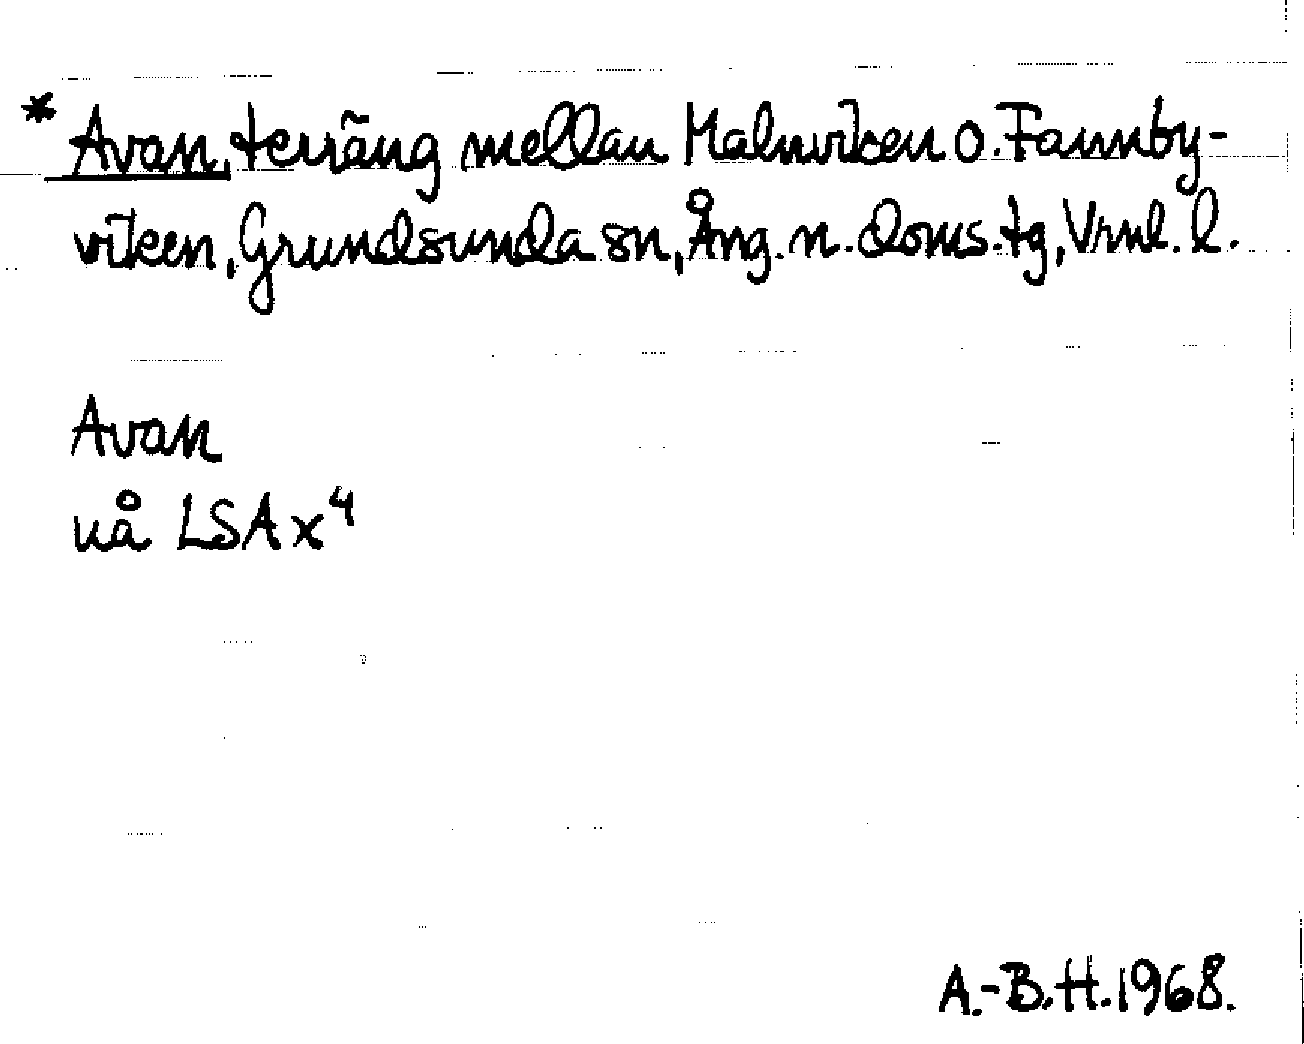 * Avan, terräng mellan Malmviken o. Fannby-
viken, Grundsunda sn, Ång. n. doms. tg, Vrnl. l.
Avan
uå LSA x⁴
A.-B.H. 1968.